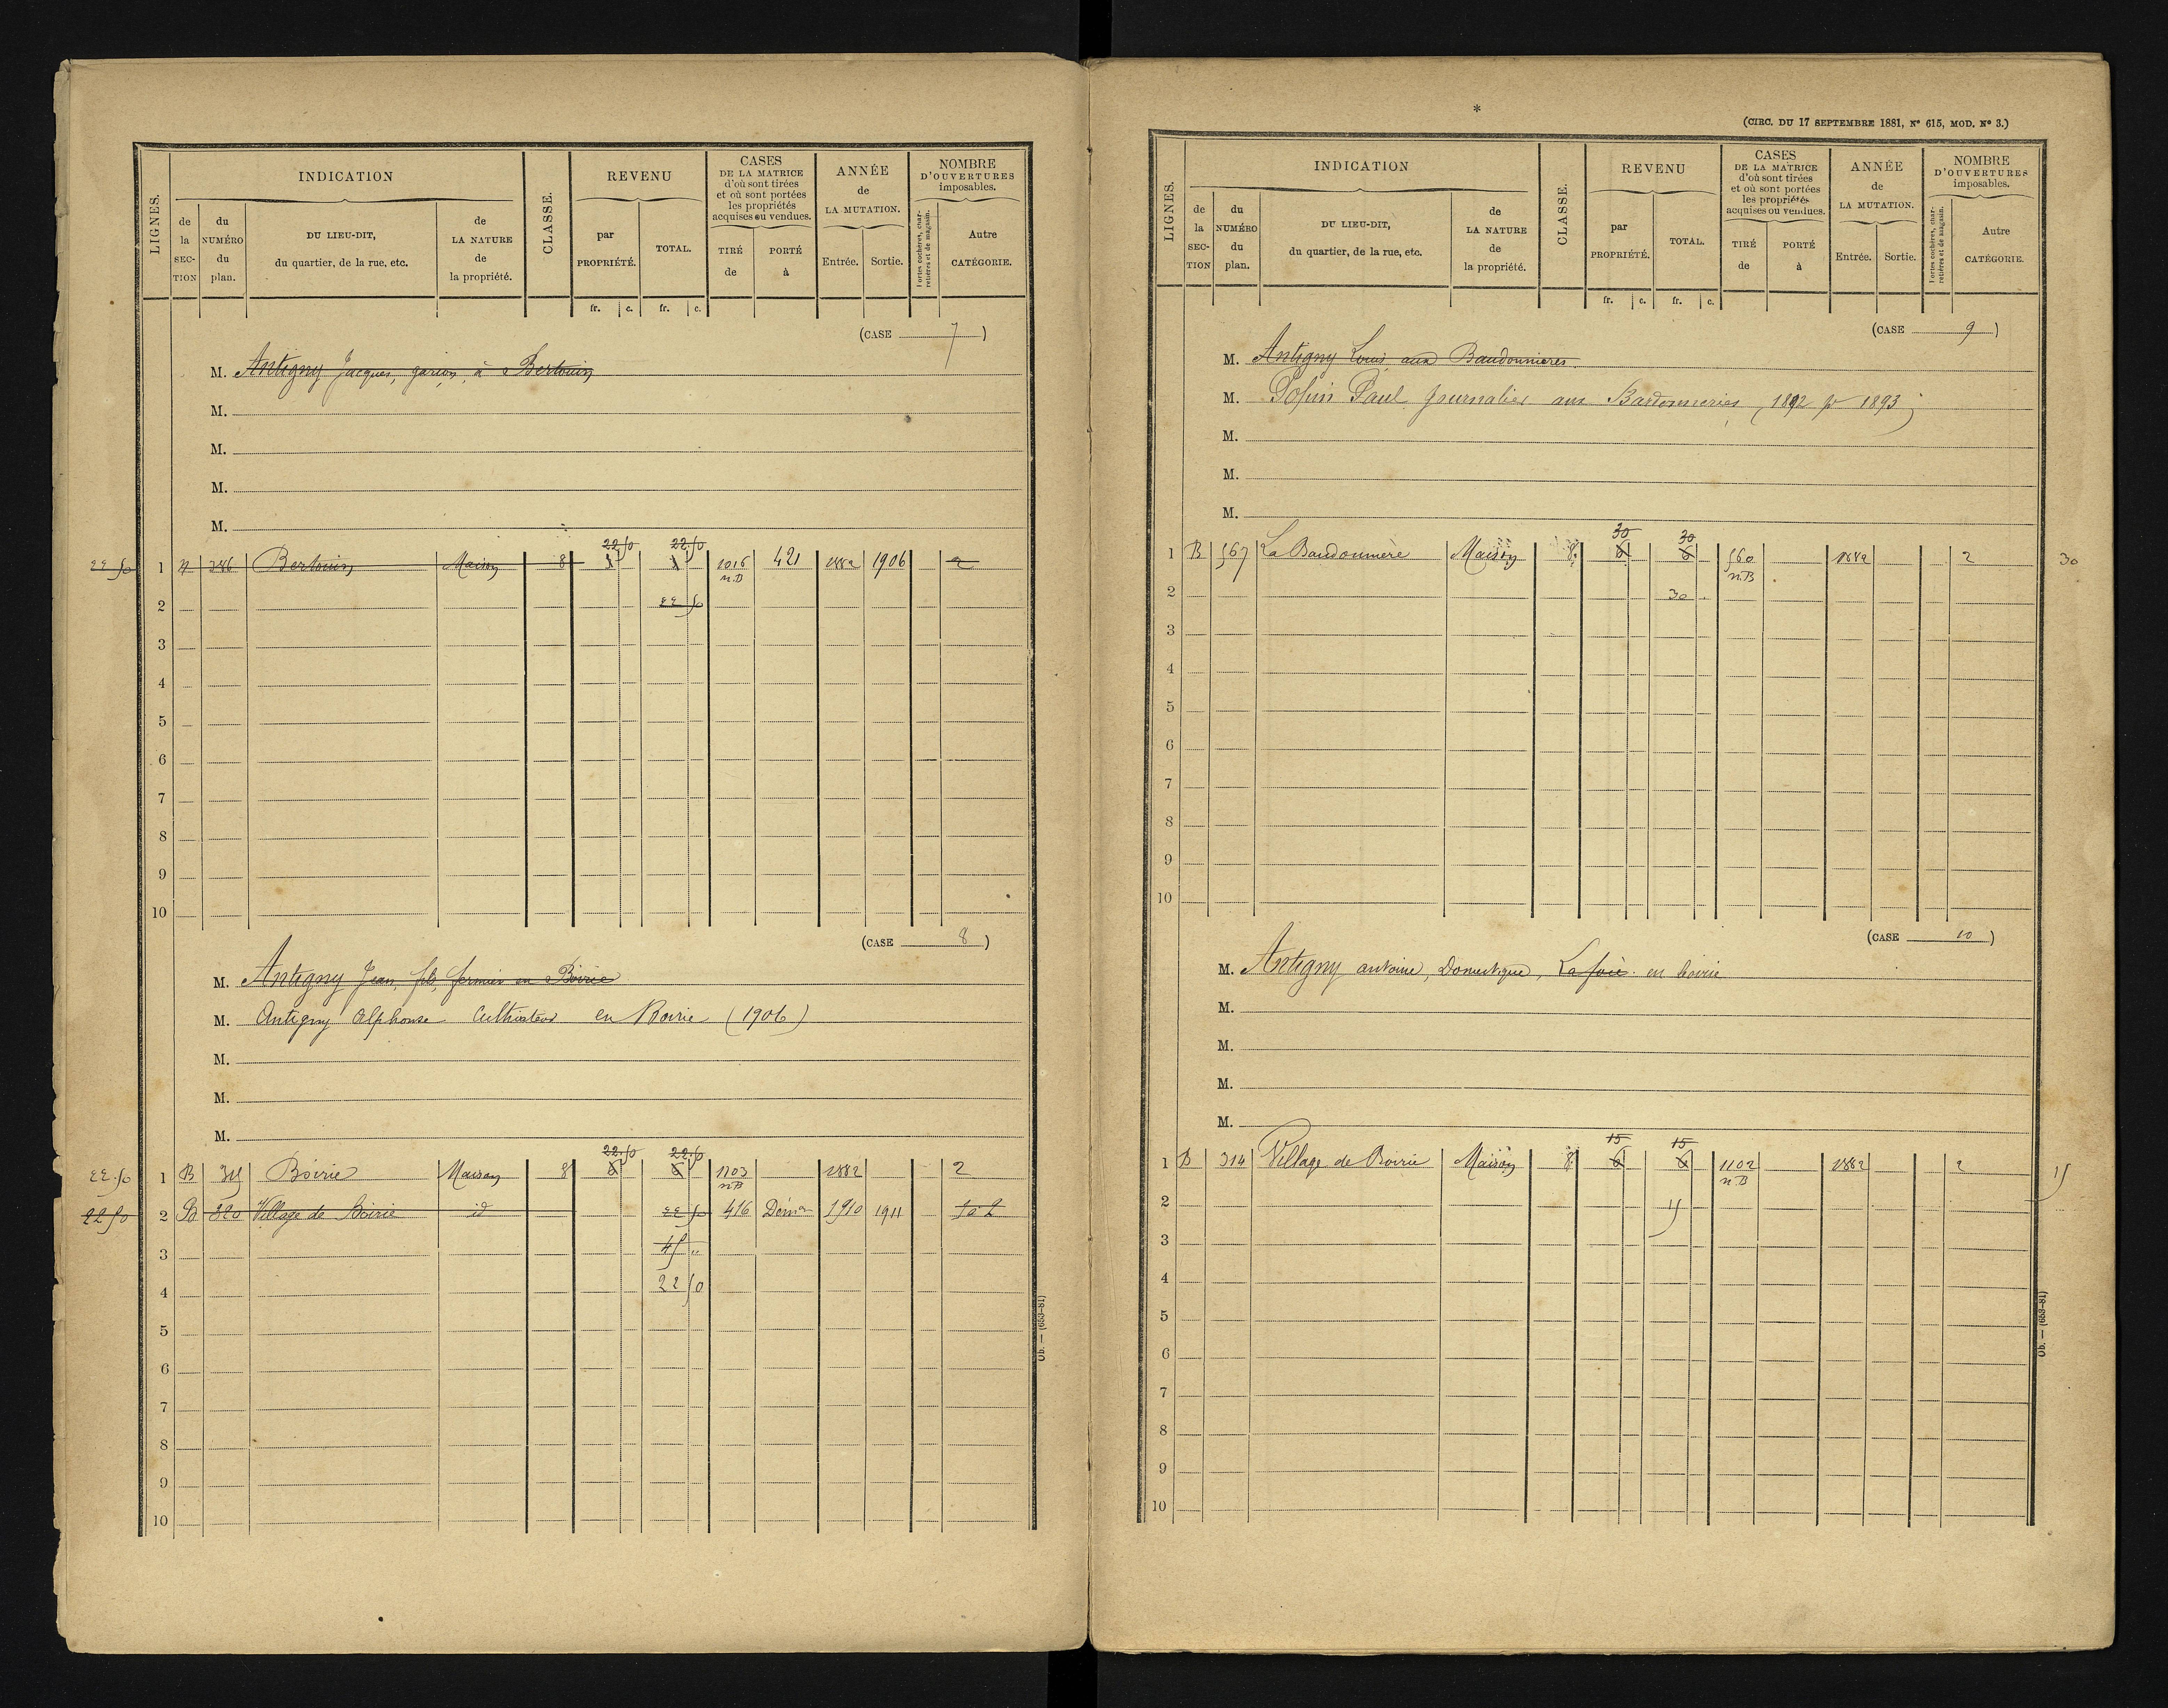 LIGNES.
INDICATION
CLASSE.
REVENU
CASES
DE LA MATRICE
d'où sont tirées
et où sont portées
les propriétés
acquises ou vendues.
ANNÉE
de
LA MUTATION.
NOMBRE
D'OUVERTURES
imposables.
de la SEC-TION
du NUMÉRO du plan.
DU LIEU-DIT,
du quartier, de la rue, etc.
de LA NATURE de la propriété.
par PROPRIÉTÉ.
TOTAL.
TIRÉ de
PORTÉ à
Entrée.
Sortie.
Portes cochères, charretières et de magasin.
Autre CATÉGORIE.
fr. c. fr. c.
(CASE 7)
M. Antigny Jacques, garçon, à Bertouin
M.
M.
M.
M.
22.50 22.50
22 50 1 346 Bertouin Maison 8 1016 421 1882 1906 2
n.B
2 22 50
3
4
5
6
7
8
9
10
(CASE 8)
M. Antigny Jean, fils, fermier en Boirie
M. Antigny Alphonse Cultivateur en Boirie (1906)
M.
M.
M.
22.50 22.50
22.50 1 B Boirie Maison 8 6 6 1103 1882 2
n.B
22 50 2 B 320 Village de Boirie id 22 50 416 Démon 1910 1911
3 45 "
4 22 50
5
6
7
8
9
10
Ob. — (653-81)
*
(CIRC. DU 17 SEPTEMBRE 1881, N° 615, MOD. N° 3.)
LIGNES.
INDICATION
CLASSE.
REVENU
CASES
DE LA MATRICE
d'où sont tirées
et où sont portées
les propriétés
acquises ou vendues.
ANNÉE
de
LA MUTATION.
NOMBRE
D'OUVERTURES
imposables.
de la SEC-TION
du NUMÉRO du plan.
DU LIEU-DIT,
du quartier, de la rue, etc.
de LA NATURE de la propriété.
par PROPRIÉTÉ.
TOTAL.
TIRÉ de
PORTÉ à
Entrée.
Sortie.
Portes cochères, charretières et de magasin.
Autre CATÉGORIE.
fr. c. fr. c.
(CASE 9)
M. Antigny Louis aux Baudonnieres
M. Paul Journalier aux Bardonneries (1892 pr 1893)
M.
M.
M.
30 30
1 B 567 La Baudounière Maison 8 6 6 560 1882 2 30
n.B
2 30
3
4
5
6
7
8
9
10
(CASE 10)
M. Antigny antoine, Domestique, en boirie
M.
M.
M.
M.
15 15
1 B 314 Village de Boirie Maison 8 6 6 1102 1882 2 15
n.B
2 15
3
4
5
6
7
8
9
10
Ob. — (653-81)